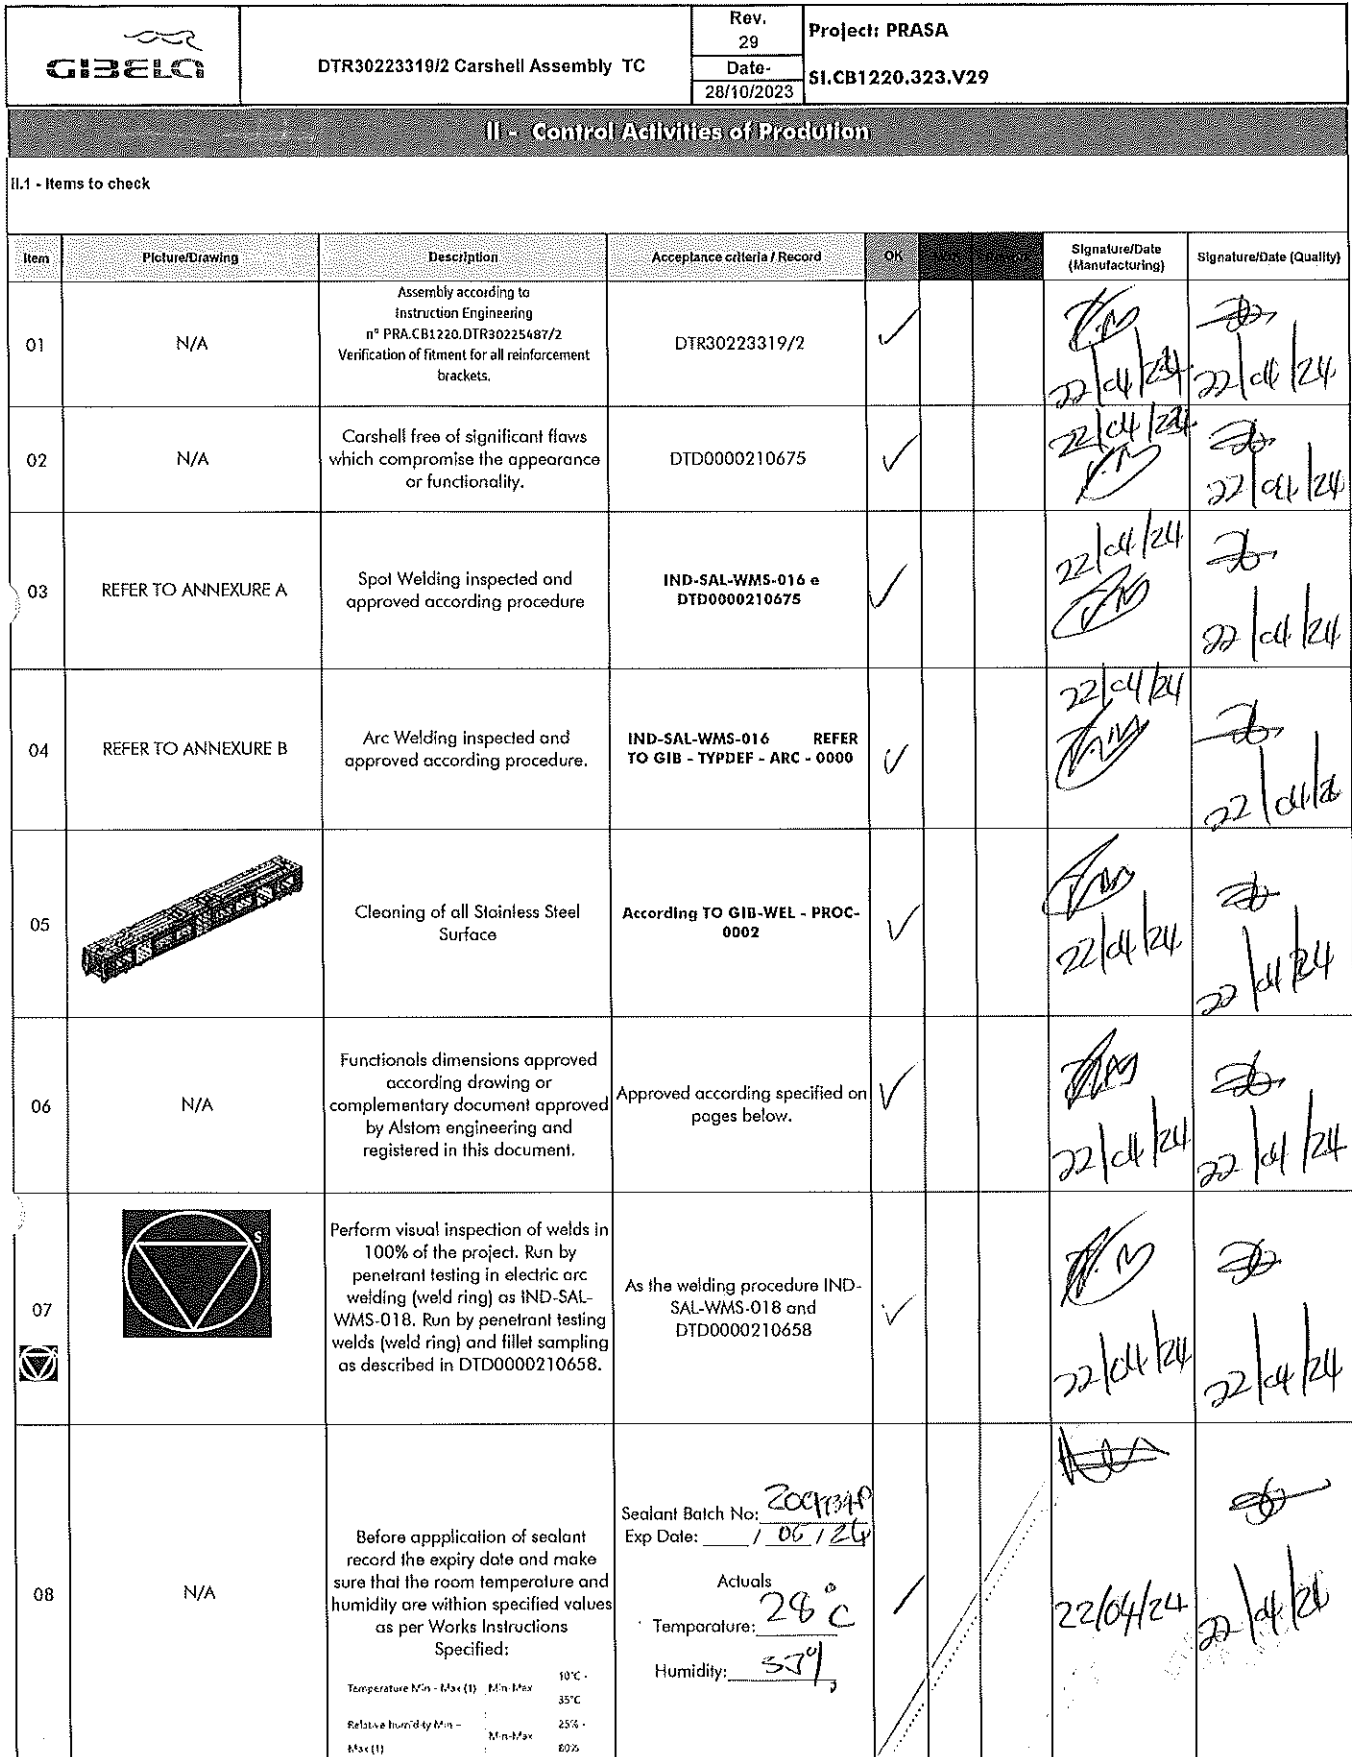 GIBELA
DTR30223319/2 Carshell Assembly TC
Rev.
29
Date-
28/10/2023
Project: PRASA
SI.CB1220.323.V29
II - Control Activities of Prodution
II.1 - Items to check
Item
Picture/Drawing
Description
Acceptance criteria / Record
OK
Signature/Date
(Manufacturing)
Signature/Date (Quality)
01
N/A
Assembly according to
Instruction Engineering
nº PRA.CB1220.DTR30225487/2
Verification of fitment for all reinforcement
brackets.
DTR30223319/2
22/04/24
22/04/24
02
N/A
Carshell free of significant flaws
which compromise the appearance
or functionality.
DTD0000210675
22/04/24
22/04/24
03
REFER TO ANNEXURE A
Spot Welding inspected and
approved according procedure
IND-SAL-WMS-016 e
DTD0000210675
22/04/24
22/04/24
04
REFER TO ANNEXURE B
Arc Welding inspected and
approved according procedure.
IND-SAL-WMS-016 REFER
TO GIB - TYPDEF - ARC - 0000
22/04/24
22/04/2
05
Cleaning of all Stainless Steel
Surface
According TO GIB-WEL - PROC-
0002
22/04/24
22/04/24
06
N/A
Functionals dimensions approved
according drawing or
complementary document approved
by Alstom engineering and
registered in this document.
Approved according specified on
pages below.
22/04/24
22/04/24
07
S
Perform visual inspection of welds in
100% of the project. Run by
penetrant testing in electric arc
welding (weld ring) as IND-SAL-
WMS-018. Run by penetrant testing
welds (weld ring) and fillet sampling
as described in DTD0000210658.
As the welding procedure IND-
SAL-WMS-018 and
DTD0000210658
22/04/24
22/04/24
08
N/A
Before appplication of sealant
record the expiry date and make
sure that the room temperature and
humidity are withion specified values
as per Works Instructions
Specified:
Temperature Min - Max (1) Min-Max 10°C -
35°C
Relative humidity Min -
Max (1) Min-Max 25% -
80%
Sealant Batch No:
Exp Date: / 06 / 24
Actuals
Temporature: 28°C
Humidity:
22/04/24
22/04/24